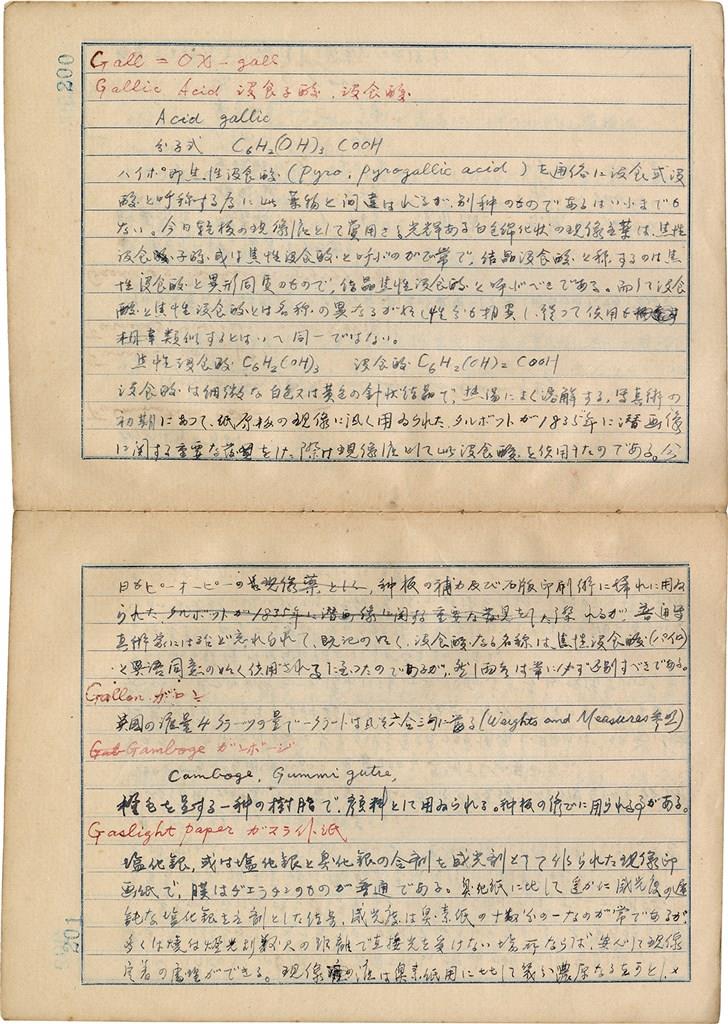 200
Gall = Ox-gall
Gallic Acid 没食子酸、没食酸
Acid gallic
分子式 C6H2(OH)3 COOH
ハイポ即焦性没食酸(pyro, pyrogallic acid)を通俗に没食或没
酸と呼称する為に此薬物と間違はれるが、別種のものであるはいふまでも
ない。今日乾板の現像液として賞用さる光輝ある白色綿化状の現像主薬は、焦性
没食子酸或は焦性没食酸と呼ぶのが常で、結晶没食酸と称するのは焦
性没食酸と異形同質のもので、結晶焦性没食酸と呼ぶべきである。而して没食
酸と焦性没食酸とは名称の異なるが如く性分も相異し、従って使用も
類似するとはいへ同一ではない。
焦性没食酸 C6H2(OH)3 没食酸 C6H2(OH)2 COOH
没食酸は細微な白色又は黄色の針状結晶で、熱湯によく溶解する。写真術の
初期にあって、紙原板の現像に汎く用ゐられた。タルボットが1835年に潜画像
に関する重要な発見をした際は現像液として此没食酸を使用したのである。今
日がピーオーピーの現像薬とし、種板の補力及び石版印刷術に稀れに用ゐ
られた、タルボットが1835年に潜画像に関する重要な発見をした際 れるが、普通写
真術家には殆ど忘れられて、既記の如く、没食酸なる名称は焦性没食酸(パイロ)
と異語同意の如く使用されるに至ったのであるが、然し両者は常に必ず区別すべきである。
Gallon ガロン
英国の液量4クラーツの量で一クラートは凡そ六合三勺に当る(Weights and Measures参照)
Gamboge ガンボージ
Camboge, Gummi gutae,
橙色を呈する一種の樹脂で、顔料として用ゐられる。種板の修正に用られる事がある。
Gaslight paper ガスライト紙
塩化銀、或は塩化銀と臭化銀の合剤を感光剤として作られた現像印
画紙で、膜はゼエラチンのものが普通である。臭化紙に比して遥かに感光度の遅
鈍な塩化銀を主剤とした結果、感光度は臭素紙の十数分の一なのが常であるが
多くは燈光より数尺の距離で直接光を受けない場所ならば、安心して現像
定着の処理ができる。現像液は臭素紙用に比して幾分濃厚なるを可とし、
201